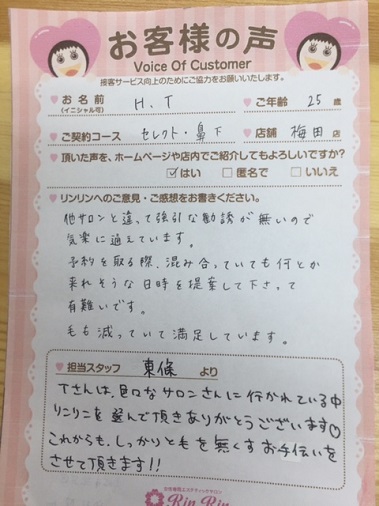 お客様の声
Voice Of Customer
接客サービス向上のためにご協力をお願いいたします。
お名前 H.T ご年齢 25 歳
(イニシャル可)
ご契約コース セレクト・鼻下 店舗 梅田 店
頂いた声を、ホームページや店内でご紹介してもよろしいですか?
☑はい □匿名で □いいえ
リンリンへのご意見・ご感想をお書きください。
他サロンと違って強引な勧誘が無いので
気楽に通えています。
予約を取る際、混み合っていても何とか
来れそうな日時を提案して下さって
有難いです。
毛も減っていて満足しています。
担当スタッフ 東條 より
Tさんは、色々なサロンさんに行かれている中
リンリンを選んで頂きありがとうございます♡
これからも、しっかりと毛を無くすお手伝いを
させて頂きます!!
女性専用エステティックサロン
Rin Rin